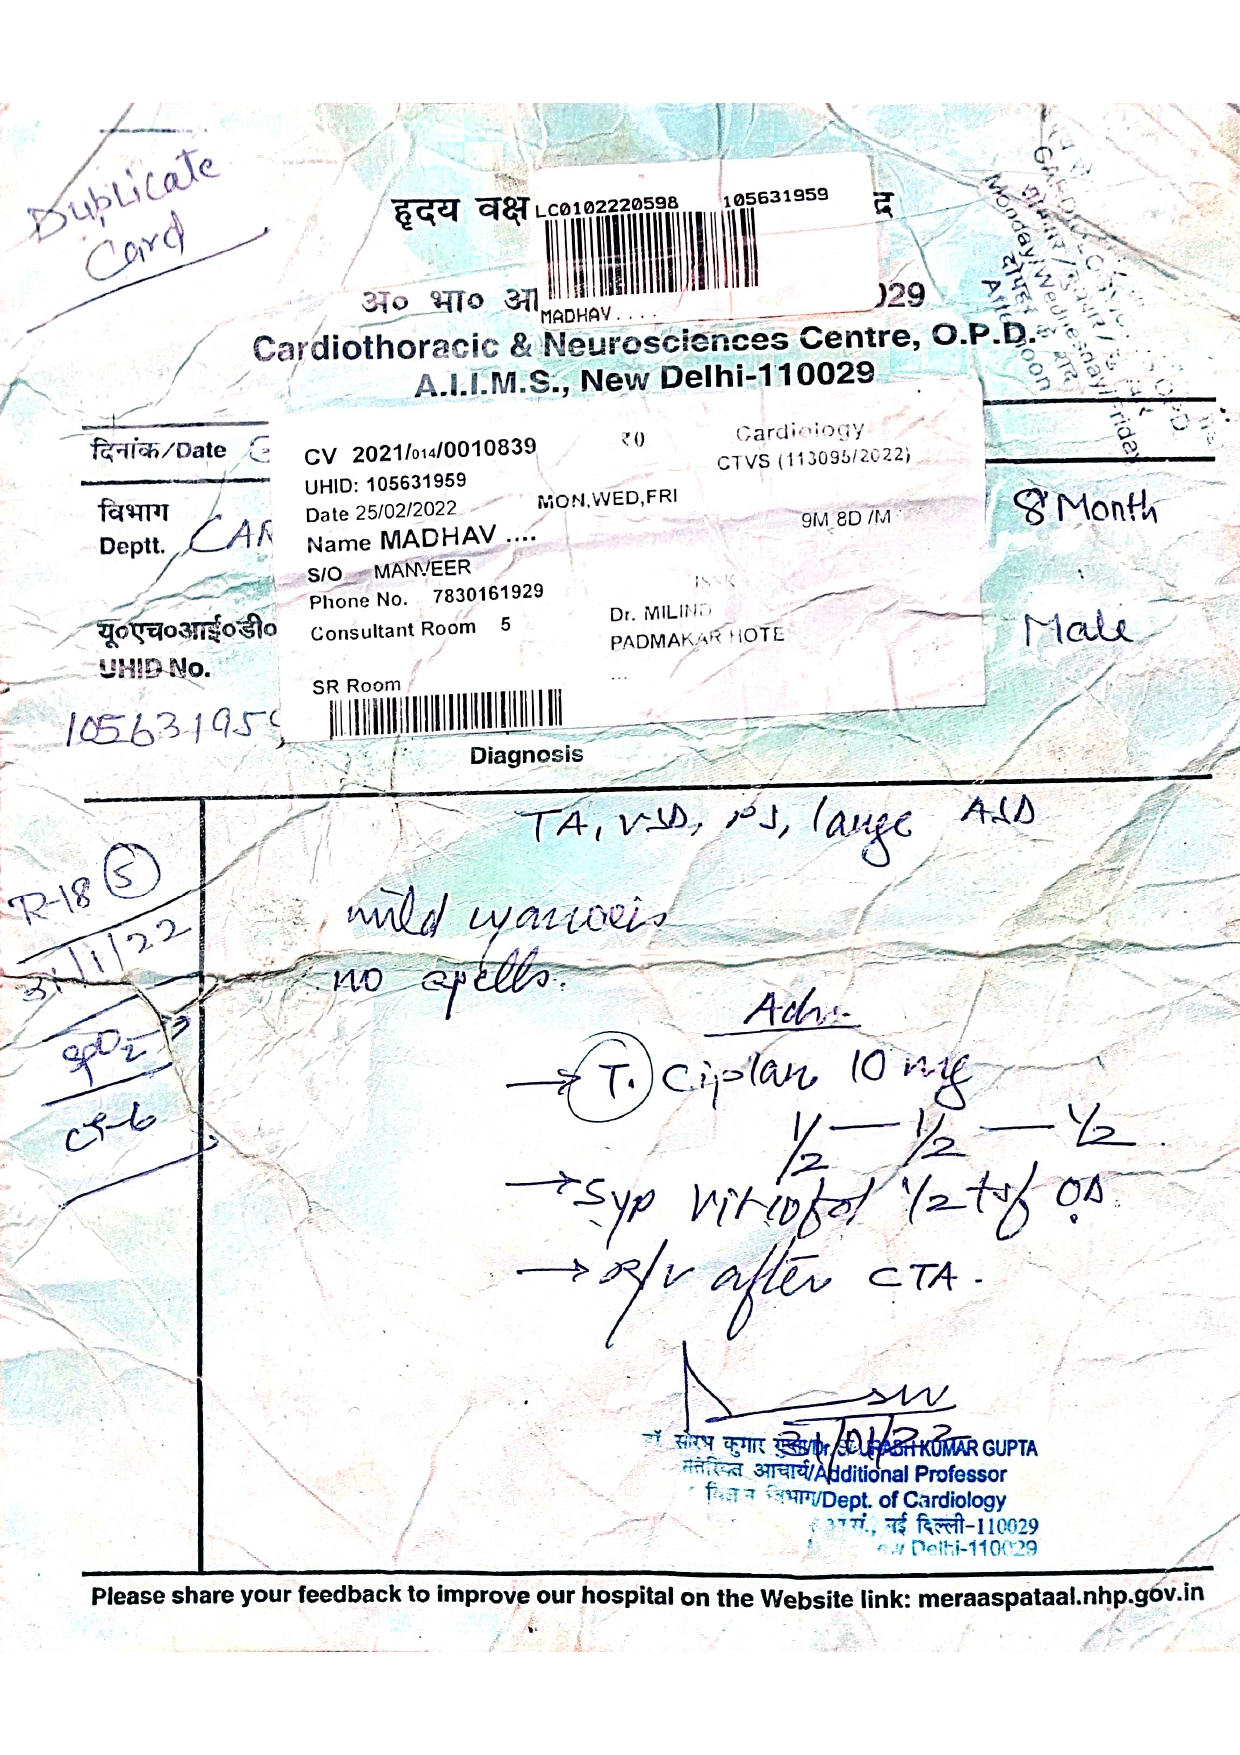 Duplicate
Card
हृदय वक्ष
द्र
LC0102220598 105631959
MADHAV....
अ० भा० आ
029
Cardiothoracic & Neurosciences Centre, O.P.D.
A.I.I.M.S., New Delhi-110029
Monday/Wednesday/Friday
दिनांक/Date
CV 2021/014/0010839 ₹0 Cardiology
CTVS (113095/2022)
UHID: 105631959
Date 25/02/2022 MON,WED,FRI
9M 8D /M
विभाग
Deptt. CAR
8 Month
Name MADHAV ....
S/O MANVEER
Phone No. 7830161929
Dr. MILIND
Consultant Room 5 PADMAKAR HOTE
...
यू०एच०आई०डी०
UHID No.
Male
SR Room
105631959
Diagnosis
TA, VSD, PS, large ASD
R-18 5
31/1/22
mild cyanosis
no spells.
SpO2
Adv.
→ T. Ciplar 10 mg
1/2 — 1/2 — 1/2
→ Syp Vitcofol 1/2 tsf OD
→ R/V after CTA.
31/01/22
डॉ सौरभ कुमार गुप्ता/Dr. SAURABH KUMAR GUPTA
अतिरिक्त आचार्य/Additional Professor
विज्ञान विभाग/Dept. of Cardiology
नई दिल्ली-110029
New Delhi-110029
Please share your feedback to improve our hospital on the Website link: meraaspataal.nhp.gov.in